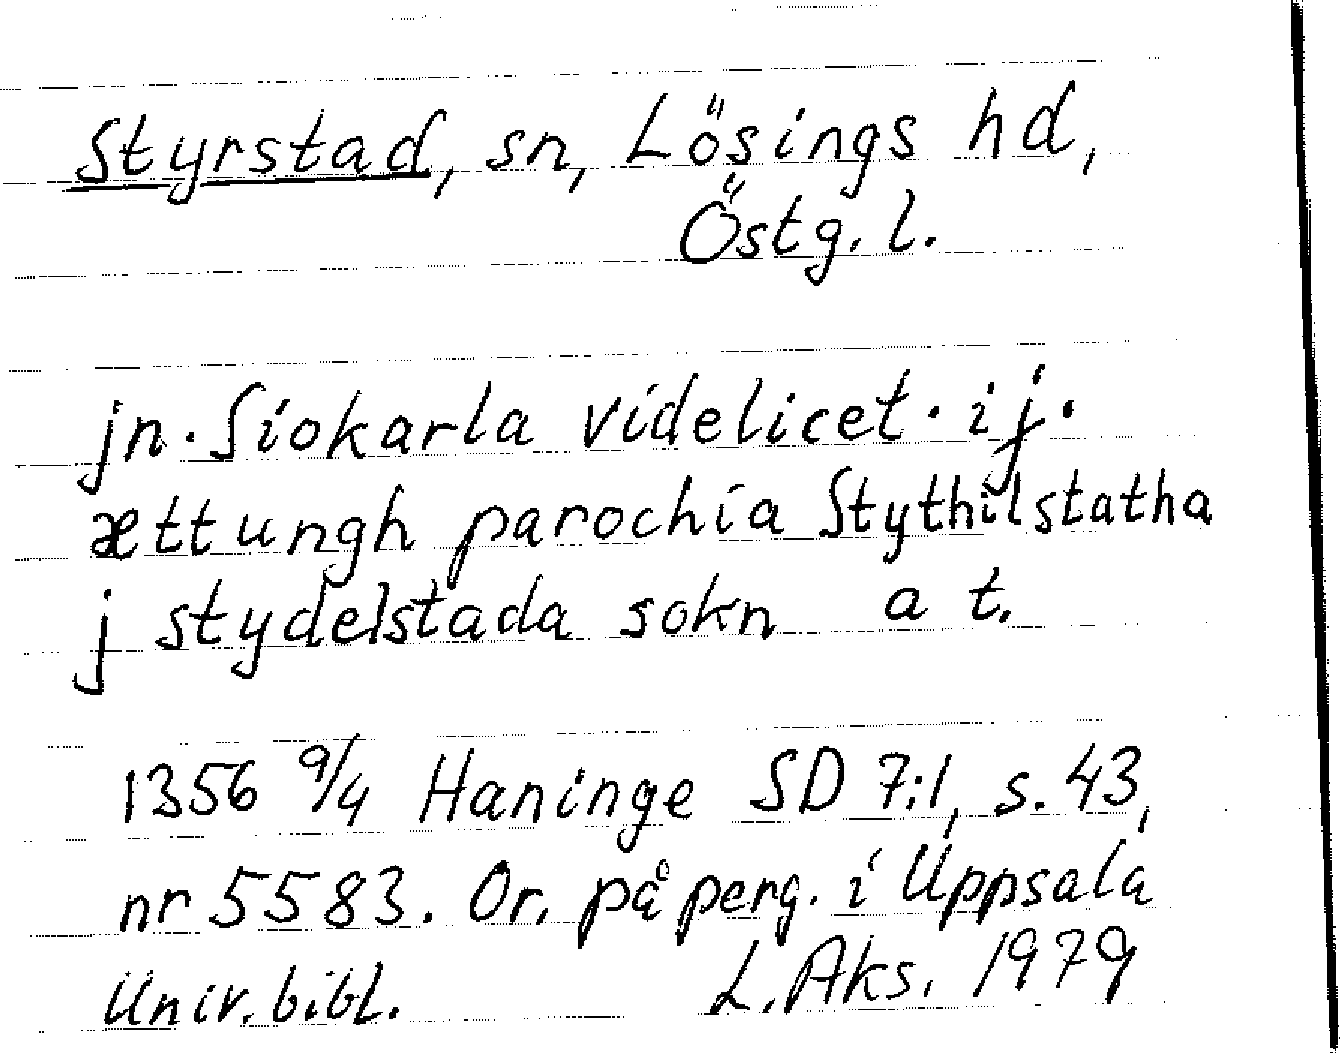 Styrstad, sn, Lösings hd,
Östg. l.
jn. Siokarla videlicet. ij.
ættungh parochia Stythilstatha
j stydelstada sokn a t.
1356 9/4 Haninge SD 7:1, s. 43,
nr 5583. Or. på perg. i Uppsala
Univ. bibl. L. Aks. 1979